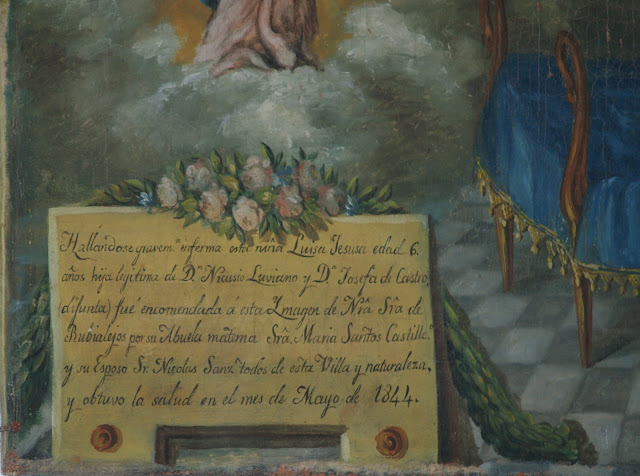 Hallandose gravem.te enferma esta niña Luisa Jesusa edad 6.
años hija legitima de D.n Nicasio Luviano y D.a Josefa de Castro,
(difunta) fué encomendada á esta Ymagen de Nrâ Srâ de
Rubialejos por su Abuela materna Srâ. Maria Santos Castillo.
y su Esposo Sr. Nicolas Sanz todos de esta Villa y naturaleza,
y obtuvo la salud en el mes de Mayo de 1844.